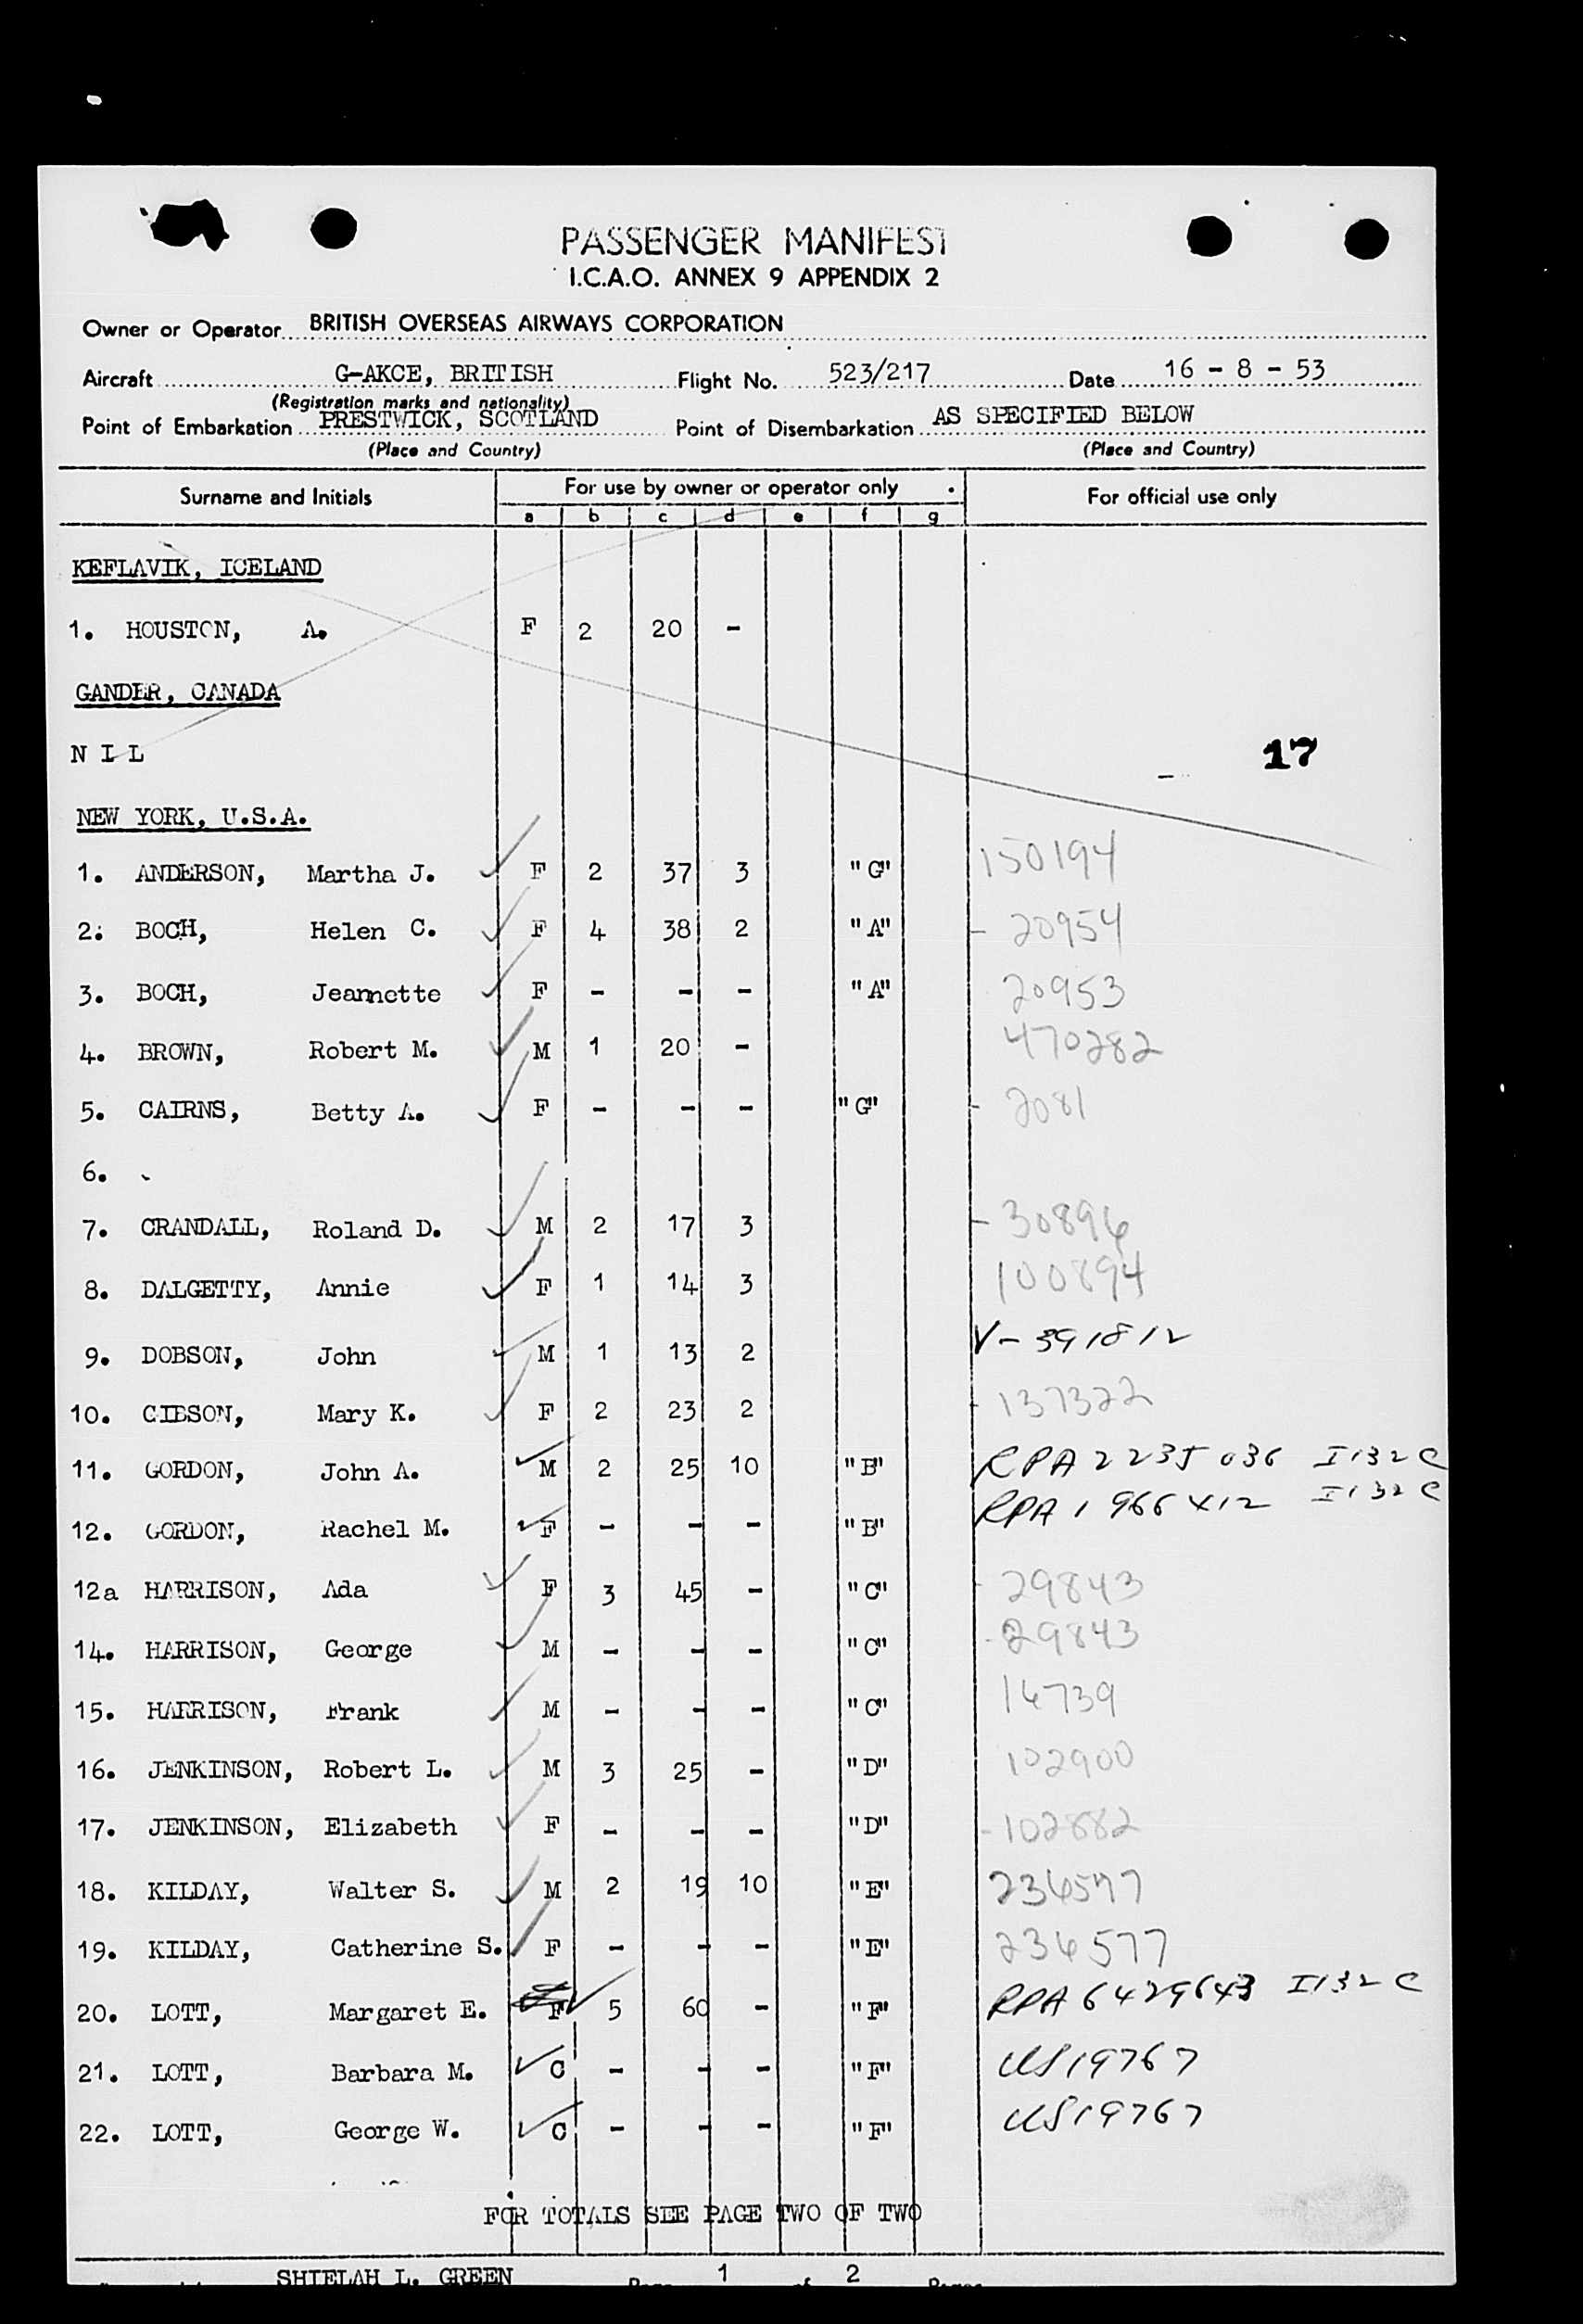 PASSENGER MANIFEST
I.C.A.O. ANNEX 9 APPENDIX 2
Owner or Operator BRITISH OVERSEAS AIRWAYS CORPORATION
Aircraft G-AKCE, BRITISH Flight No. 523/217 Date 16 - 8 - 53
(Registration marks and nationality)
Point of Embarkation PRESTWICK, SCOTLAND Point of Disembarkation AS SPECIFIED BELOW
(Place and Country) (Place and Country)
Surname and Initials For use by owner or operator only For official use only
a b c d e f g
KEFLAVIK, ICELAND
1. HOUSTON, A. F 2 20 -
GANDER, CANADA
N I L
17
NEW YORK, U.S.A.
1. ANDERSON, Martha J. F 2 37 3 "G" 150194
2. BOCH, Helen C. F 4 38 2 "A" - 20954
3. BOCH, Jeannette F - - - "A" 20953
4. BROWN, Robert M. M 1 20 - 470282
5. CAIRNS, Betty A. F - - - "G" - 2081
6.
7. CRANDALL, Roland D. M 2 17 3 - 30896
8. DALGETTY, Annie F 1 14 3 100894
9. DOBSON, John M 1 13 2 V-391812
10. GIBSON, Mary K. F 2 23 2 - 137322
11. GORDON, John A. M 2 25 10 "B" RPA 2235036 I132C
12. GORDON, Rachel M. F - - - "B" RPA 1966412 I132C
12a HARRISON, Ada F 3 45 - "C" - 29843
14. HARRISON, George M - - - "C" - 29843
15. HARRISON, Frank M - - - "C" 16739
16. JENKINSON, Robert L. M 3 25 - "D" 102900
17. JENKINSON, Elizabeth F - - - "D" - 102882
18. KILDAY, Walter S. M 2 19 10 "E" 236577
19. KILDAY, Catherine S. F - - - "E" 236577
20. LOTT, Margaret E. F 5 60 - "F" RPA 6429643 I132C
21. LOTT, Barbara M. C - - - "F" US19767
22. LOTT, George W. C - - - "F" US19767
FOR TOTALS SEE PAGE TWO OF TWO
SHIELAH L. GREEN Page 1 of 2 Pages